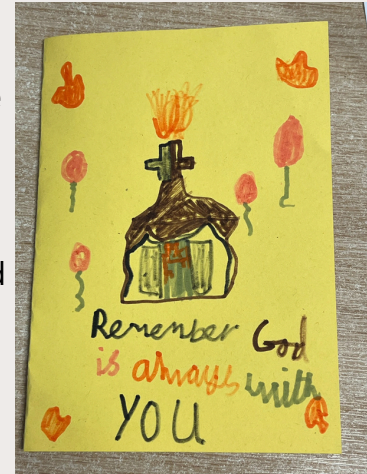 Remember God
is always with
YOU